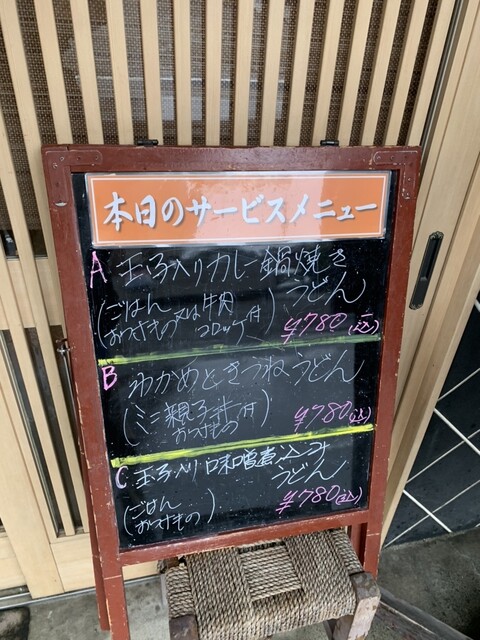 本日のサービスメニュー
A 玉子入りカレー鍋焼き
うどん
(ごはん
おつけもの又は牛肉
コロッケ付)
¥780(込)
B わかめときつねうどん
(ミニ親子丼付
おつけもの)
¥780(込)
C 玉子入り味噌煮込み
うどん
(ごはん
おつけもの)
¥780(込)